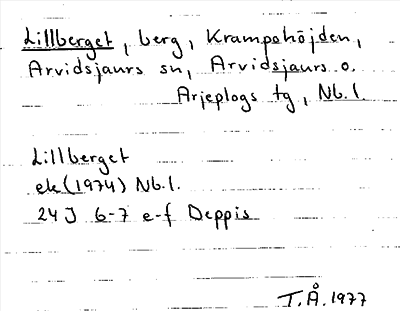 Lillberget, berg, Krampohöjden,
Arvidsjaurs sn, Arvidsjaurs o.
Arjeplogs tg, Nb.l.
Lillberget
ek(1974) Nb.l.
24J 6-7 e-f Deppis
T.Å.1977